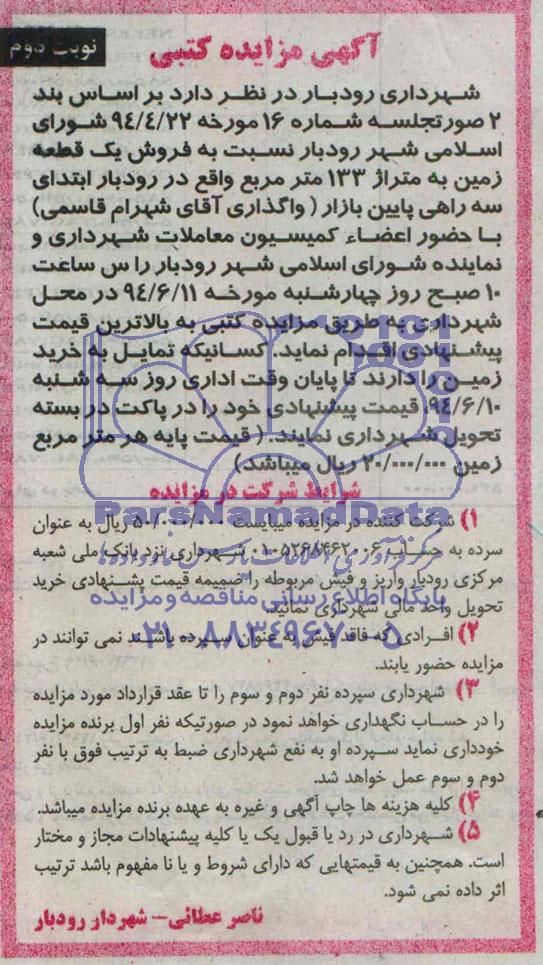 نوبت دوم
آگهی مزایده کتبی
شهرداری رودبار در نظر دارد بر اساس بند
۲ صورتجلسه شماره ۱۶ مورخه ۹٤/٤/۲۲ شورای
اسلامی شهر رودبار نسبت به فروش یک قطعه
زمین به متراژ ۱۳۳ متر مربع واقع در رودبار ابتدای
سه راهی پایین بازار ( واگذاری آقای شهرام قاسمی)
با حضور اعضاء کمیسیون معاملات شهرداری و
نماینده شورای اسلامی شهر رودبار را س ساعت
۱۰ صبح روز چهارشنبه مورخه ۹٤/۶/۱۱ در محل
شهرداری به طریق مزایده کتبی به بالاترین قیمت
پیشنهادی اقدام نماید. کسانیکه تمایل به خرید
زمین را دارند تا پایان وقت اداری روز سه شنبه
۹٤/۶/۱۰ قیمت پیشنهادی خود را در پاکت در بسته
تحویل شهرداری نمایند. ( قیمت پایه هر متر مربع
زمین ۲۰/۰۰۰/۰۰۰ ریال میباشد)
شرایط شرکت در مزایده
ParsNamadData
۱) شرکت کننده در مزایده میبایست ۵۰/۰۰۰/۰۰۰ ریال به عنوان
سرده به حساب شهرداری نزد بانک ملی شعبه
مرکزی رودبار واریز و فیش مربوطه را ضمیمه قیمت پشنهادی خرید
تحویل واحد مالی شهرداری نمائید.
پایگاه اطلاع رسانی مناقصه و مزایده
۲) افرادی که فاقد فیش به عنوان سپرده باشند نمی توانند در
مزایده حضور یابند.
۰۲۱-۸۸۳۴۹۶۷۰-۵
۳) شهرداری سپرده نفر دوم و سوم را تا عقد قرارداد مورد مزایده
را در حساب نگهداری خواهد نمود در صورتیکه نفر اول برنده مزایده
خودداری نماید سپرده او به نفع شهرداری ضبط به ترتیب فوق با نفر
دوم و سوم عمل خواهد شد.
۴) کلیه هزینه ها چاپ آگهی و غیره به عهده برنده مزایده میباشد.
۵) شهرداری در رد یا قبول یک یا کلیه پیشنهادات مجاز و مختار
است. همچنین به قیمتهایی که دارای شروط و یا نا مفهوم باشد ترتیب
اثر داده نمی شود.
ناصر عطائی– شهردار رودبار